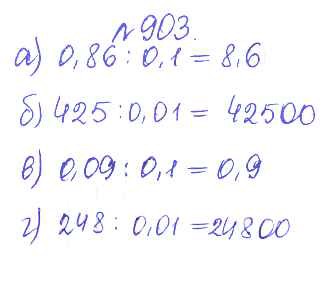 №903.
а) 0,86 : 0,1 = 8,6
б) 425 : 0,01 = 42500
в) 0,09 : 0,1 = 0,9
г) 248 : 0,01 = 24800